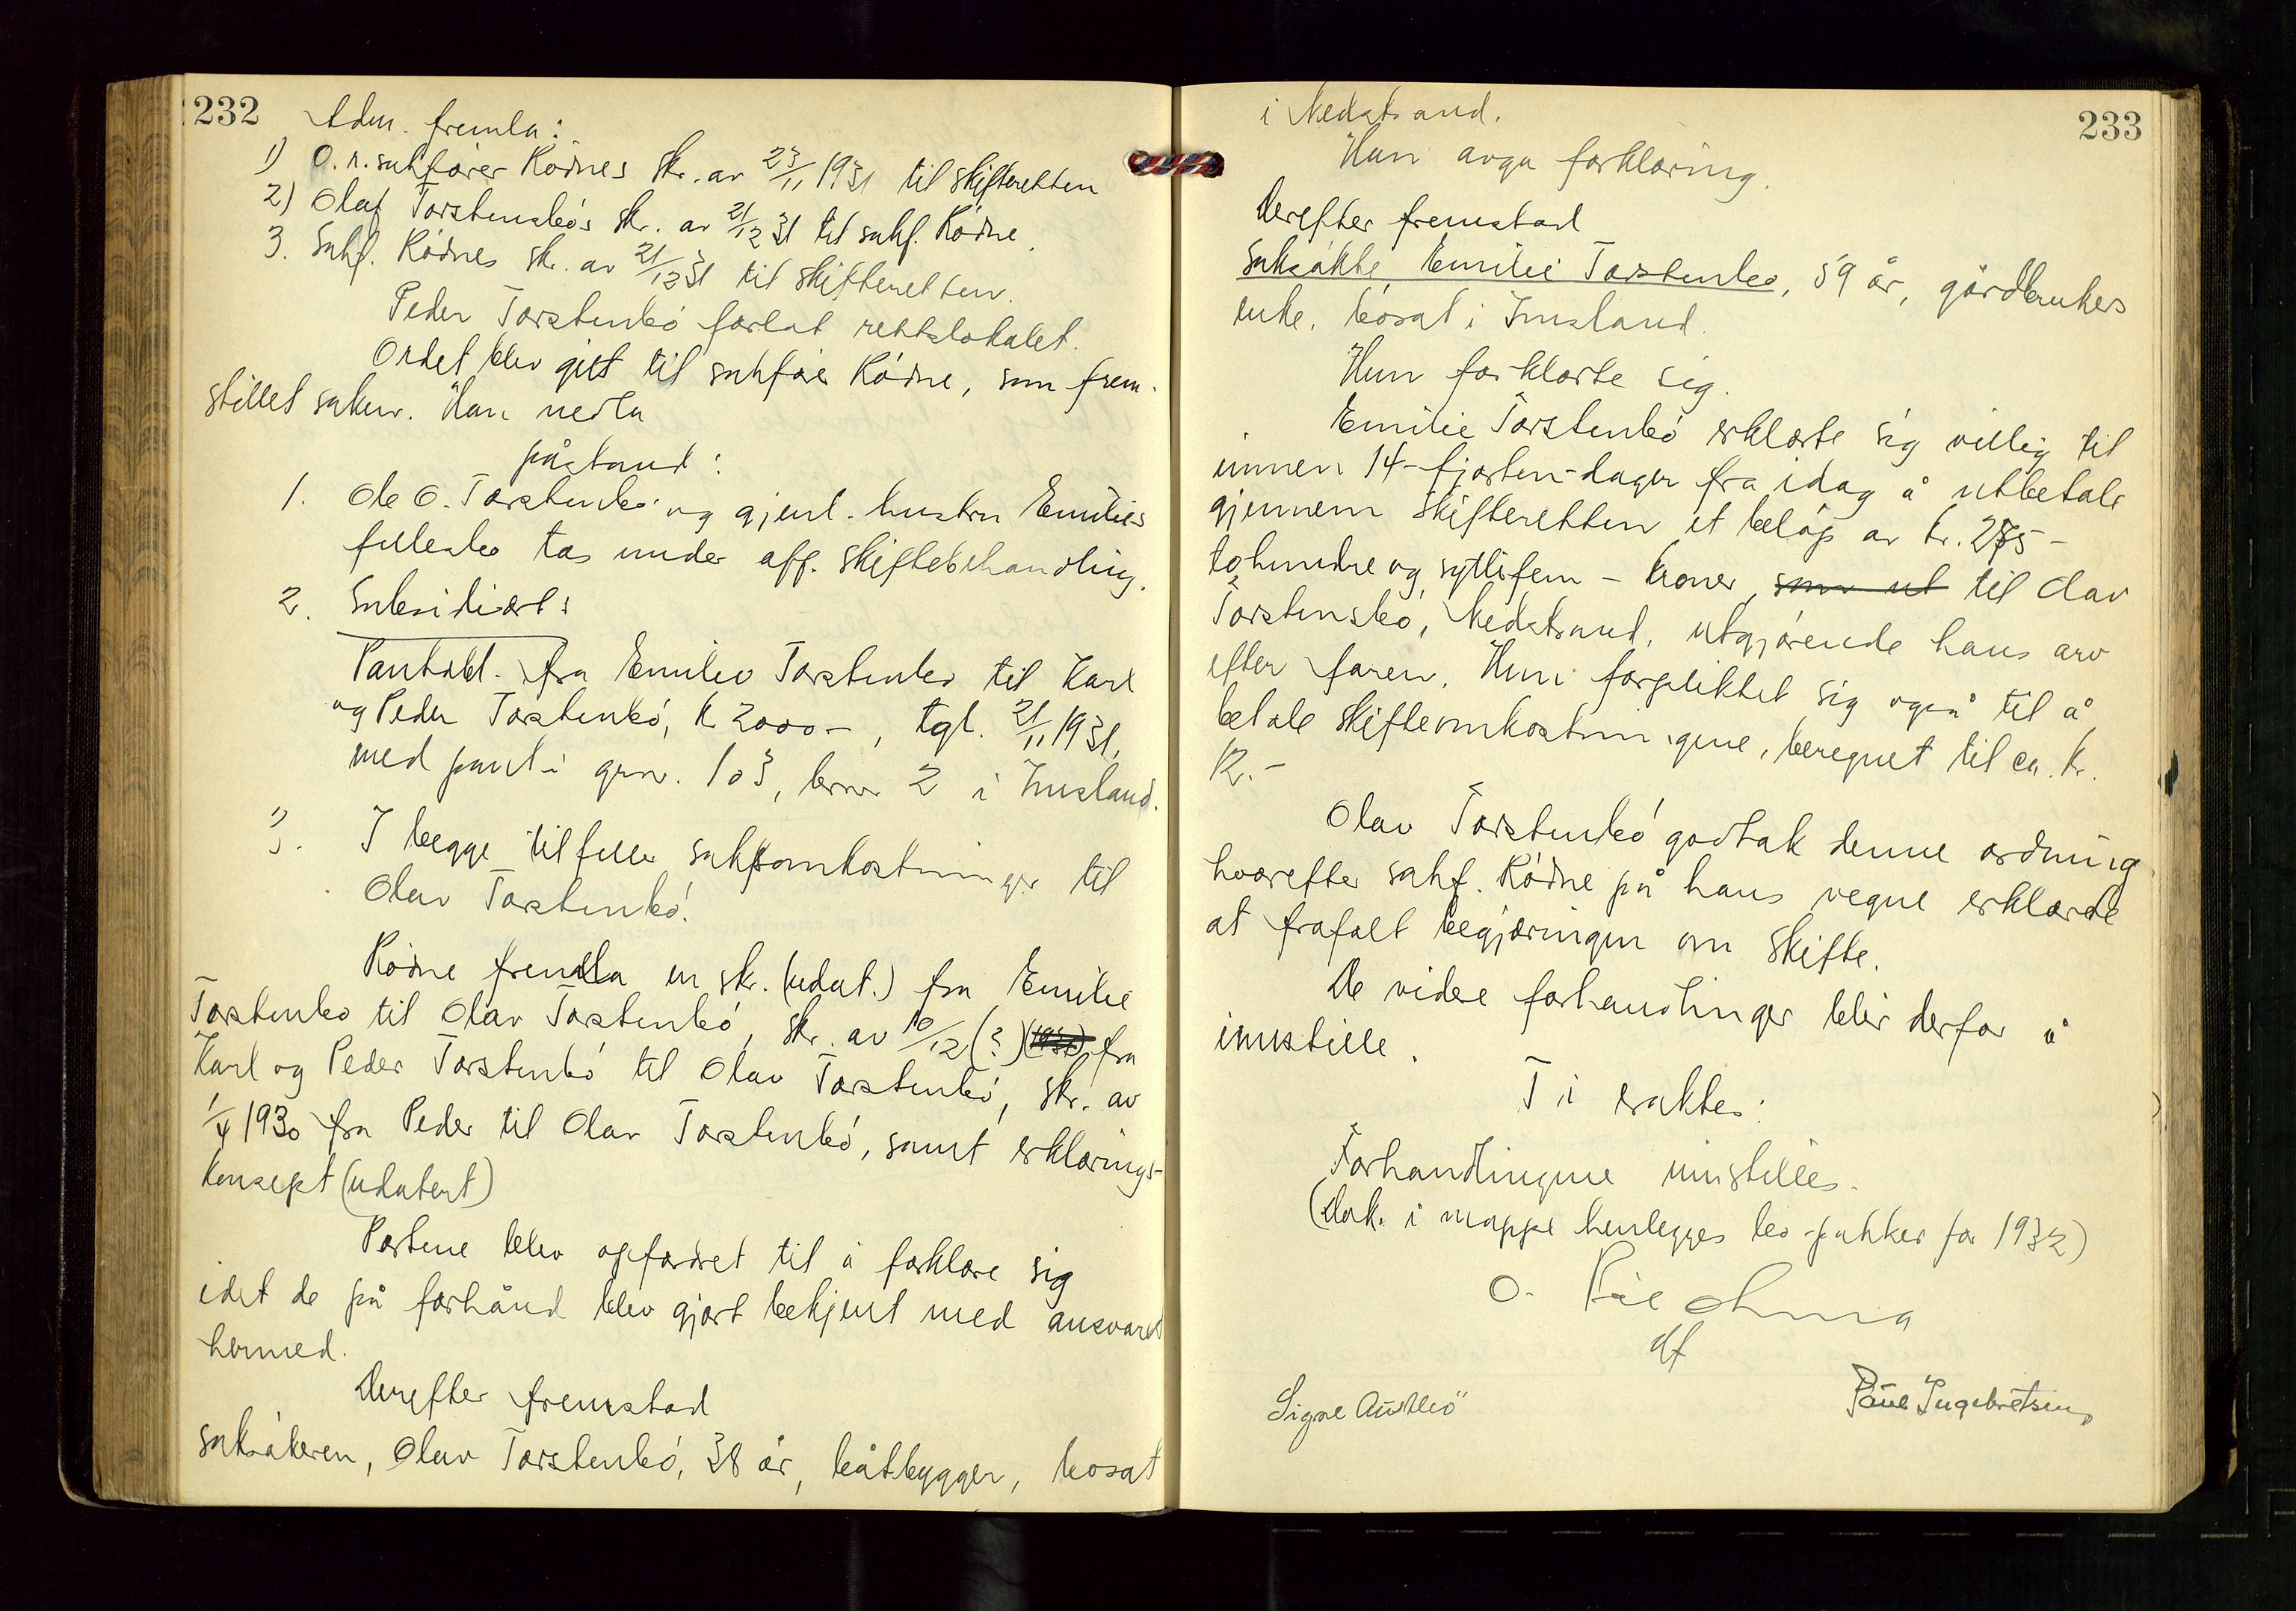 232
Adm. fremla:
1) O.r.sakfører Rødnes skr. av 23/11 1931 til skifteretten
2) Olaf Torstensbø's skr. av 21/12 31 til sakf. Rødne.
3. Sakf. Rødnes skr. av 21/12 31 til skifteretten.
Peder Torstenbø forlot rettslokalet.
Ordet blev gitt til sakfører Rødne, som frem-
stillet saken. Han nedla
påstand:
1. Ole O. Torstenbø og gjenl. hustru Emilies
fellesbo tas under off. skiftebehandling.
2. Subsidiært:
Pantobl. fra Emilie Torstenbø til Karl
og Peder Torstenbø, k 2000-, tgl. 21/11 1931,
med pant i grn. 103, brnr 2 i Imsland.
3. I begge tilfelle saksomkostninger til
Olav Torstenbø.
Rødne fremla en skr. (udat.) fra Emilie
Torstenbø til Olav Torstenbø, skr. av 10/12 (?) (1931) fra
Karl og Peder Torstenbø til Olav Torstenbø, skr. av
1/4 1930 fra Peder til Olav Torstenbø, samt erklærings-
konsept (udatert)
Partene blev opfordret til å forklare sig
idet de på forhånd blev gjort bekjent med ansvaret
hermed.
Derefter fremstod
saksøkeren, Olav Torstenbø, 38 år, båtbygger, bosat
233
i Nedstrand.
Han avga forklaring.
Derefter fremstod
Saksøkte, Emilie Torstenbø, 59 år, gårdbrukers
enke, bosat i Imsland.
Hun forklarte sig.
Emilie Torstenbø erklærte sig villig til
innen 14-fjorten-dager fra idag å utbetale
gjennem skifteretten et beløp av kr. 275-
tohundre og syttifem - kroner, som ut til Olav
Torstensbø, Nedstrand, utgjørende hans arv
efter faren. Hun forpliktet sig også til å
betale skifteomkostningene, beregnet til ca. kr.
12.-
Olav Torstenbø godtok denne ordning
hvorefter sakf. Rødne på hans vegne erklærte
at frafalt begjæringen om skifte.
De videre forhandlinger blir derfor å
innstille.
Ti eraktes:
Forhandlingene innstilles.
(Dok. i mappe henlegges bo-pakker for 1932)
O.
df
Signe Austbø
Paul Ingebretsen